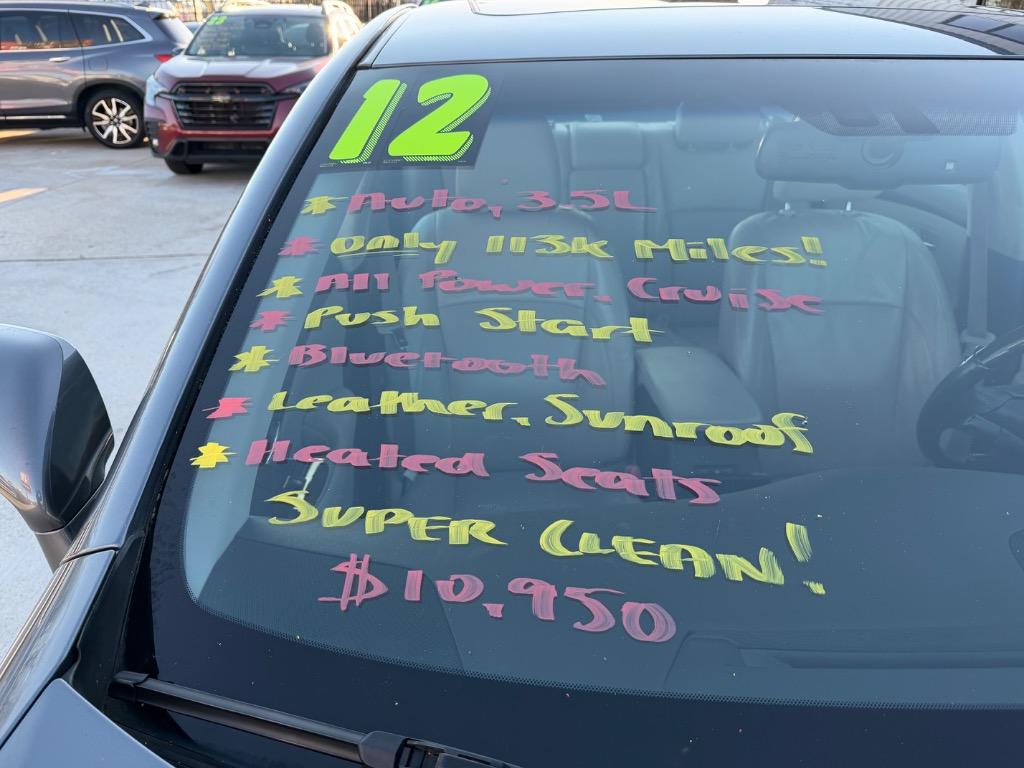 12
* Auto, 3.5L
* Only 113k Miles!
* All Power, Cruise
* Push Start
* Bluetooth
* Leather, Sunroof
* Heated Seats
SUPER CLEAN!
$10,950